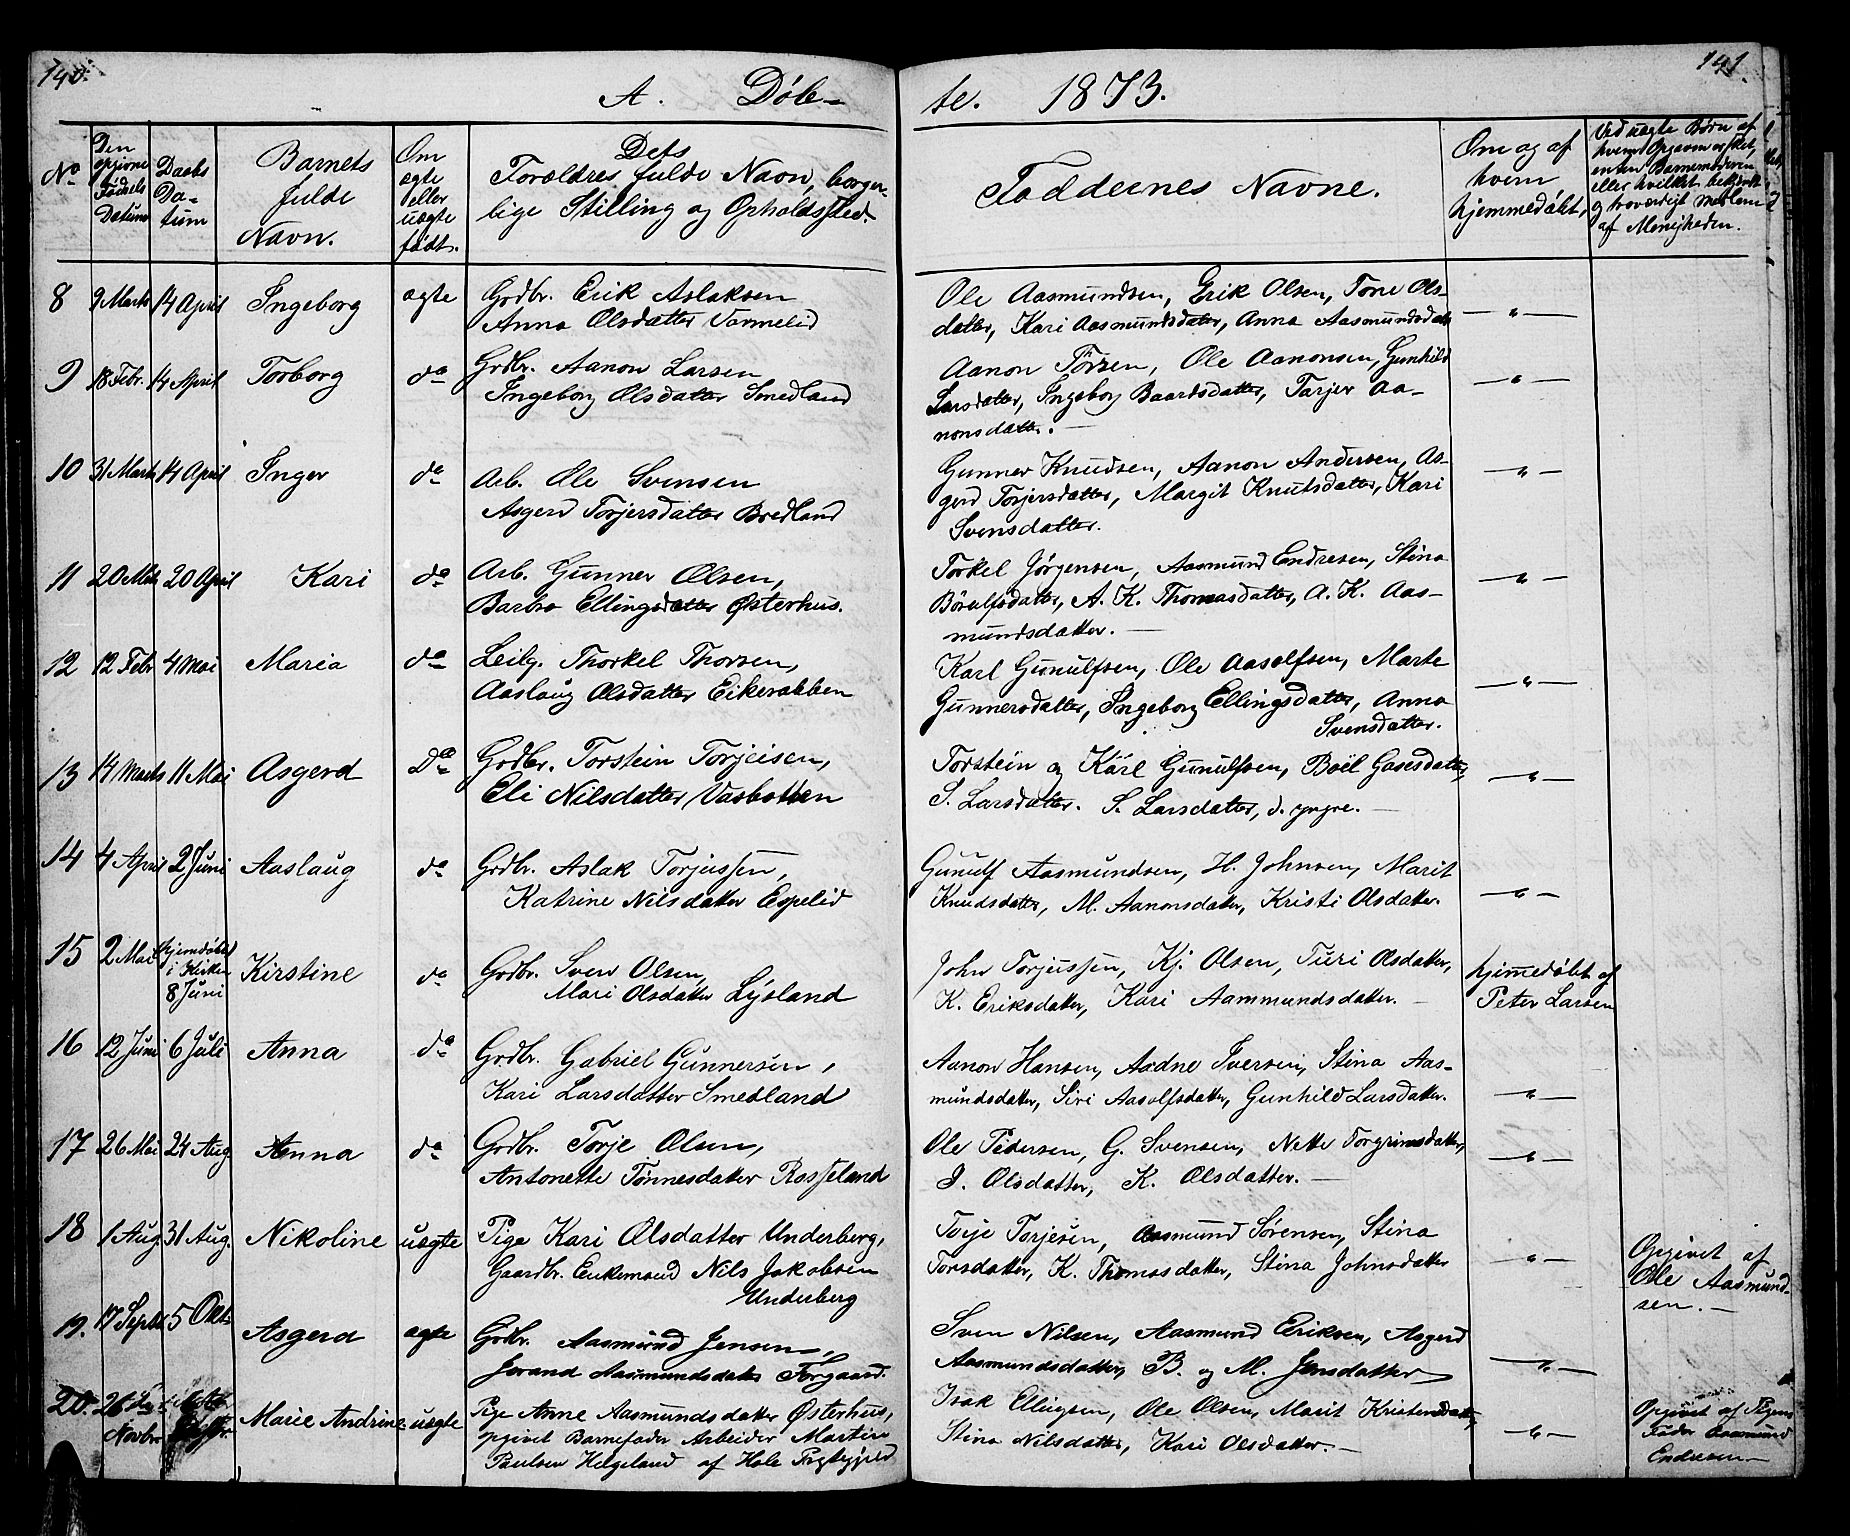 140.
141.
A. Døb-
te. 1873.
No
Den opgivne Fødsels Datum
Daabs Da-tum
Barnets fulde Navn.
Om ægte eller uægte født.
Dets Forældres fulde Navn, borger-
lige Stilling og Opholdssted.
Faddernes Navne.
Om og af hvem hjemmedøbt,
Ved uægte Børn af hvem Opgaven er sket, enten Barnemoderen eller hvilket bekjendt og troværdigt Medlem af Menigheden.
8 9 Marts 14 April Ingeborg ægte Grdbr. Erik Aslaksen
Anna Olsdatter Vormelid
Ole Aasmundsen, Erik Olsen, Tone Ols-
datter, Kari Aasmundsdatter, Anna Aasmundsdatt
— " —
9 18 Febr. 14 April Torborg do Grdbr. Aanon Larsen
Ingeborg Olsdatter Smedland
Aanon Törsen, Ole Aanonsen, Gunhild
Larsdatter, Ingeborg Baardsdatter, Tarjer Aa-
nonsdatter. —
— " —
10 31 Marts 14 April Inger do Arb. Ole Svensen
Asgerd Torjersdatter Bredland
Gunner Knudsen, Aanon Andersen, As-
gerd Torjersdatter, Margit Knutsdatter, Kari
Svensdatter.
— " —
11 20 Mts 20 April Kari do Arb. Gunner Olsen,
Barbro Ellingsdatter Østerhus.
Torkel Jörgensen, Aasmund Endresen, Stina
Börulfsdatter, A. K. Thomasdatter, A. K. Aas-
mundsdatter. —
— " —
12 12 Febr 4 Mai Maria do Leilg. Thorkel Thorsen,
Aaslaug Olsdatter Eikerabben
Karl Gunulfsen, Ole Aasolfsen, Marte
Gunnersdatter, Ingeborg Ellingsdatter, Anna
Svensdatter.
— " —
13 14 Marts 11 Mai Asgerd Do Grdbr. Torstein Torjeisen,
Eli Nilsdatter, Vasbotten
Torstein og Karl Gunulfsen, Boël Gasesdatter,
S. Larsdatter. S. Larsdatter, d. yngre. —
— " —
14 4 April 2 Juni Aaslaug do Grdbr. Aslak Torjussen,
Katrine Nilsdatter Espelid
Gunulf Aasmundsen, H. Johnsen, Marit
Knudsdatter, M. Aanonsdatter, Kristi Olsdatter.
— " —
15 2 Mai hjemdøbt i Kirken 8 Juni Kirstine do Grdbr. Sven Olsen,
Mari Olsdatter Lysland
John Torjussen, Kj. Olsen, Turi Olsdatter,
K. Eriksdatter, Kari Aammundsdatter. —
hjemmedøbt af
Peter Larsen
16 12 Juni 6 Juli Anna do Grdbr. Gabriel Gunnersen,
Kari Larsdatter Smedland
Aanon Hansen, Aadne Iversen, Stina Aas-
mundsdatter, Siri Aasolfsdatter, Gunhild Larsdatter.
— " —
17 26 Mai 24 Aug. Anna do Grdbr. Torje Olsen,
Antonette Tønnesdatter Rosseland
Ole Pedersen, G. Svensen, Nette Torgrimsdatter,
I. Olsdatter, K. Olsdatter. —
— " —
18 1 Aug. 31 Aug. Nikoline uægte Pige Kari Olsdatter Underberg,
Gaardbr. Enkemand Nils Jakobsen
Underberg
Torje Torjesen, Aasmund Sørensen, Stina
Torsdatter, K. Thomasdatter, Stina Johnsdatter
— " —
Opgivet af
Ole Aasmund-
sen. —
19. 17 Septbr 5 Okt. Asgerd ægte Grdbr. Aasmund Jensen,
Jorand Aasmundsdatter Torgaard.
Sven Nilsen, Aasmund Eriksen, Asgerd
Aasmundsdatter, B. og M. Jensdatter
— " —
20. 26 Novbr Marie Andrine uægte Pige Anne Aasmundsdatter Østerhus,
opgivet Barnefader Arbeider Martin
Paulsen Helgeland af Hole Prgtgjeld
Isak Ellingsen, Ole Olsen, Marit Kristensdatter,
Stina Nilsdatter, Kari Olsdatter. —
— " —
Opgivet af Pigens
Fader Aasmund
Endresen —